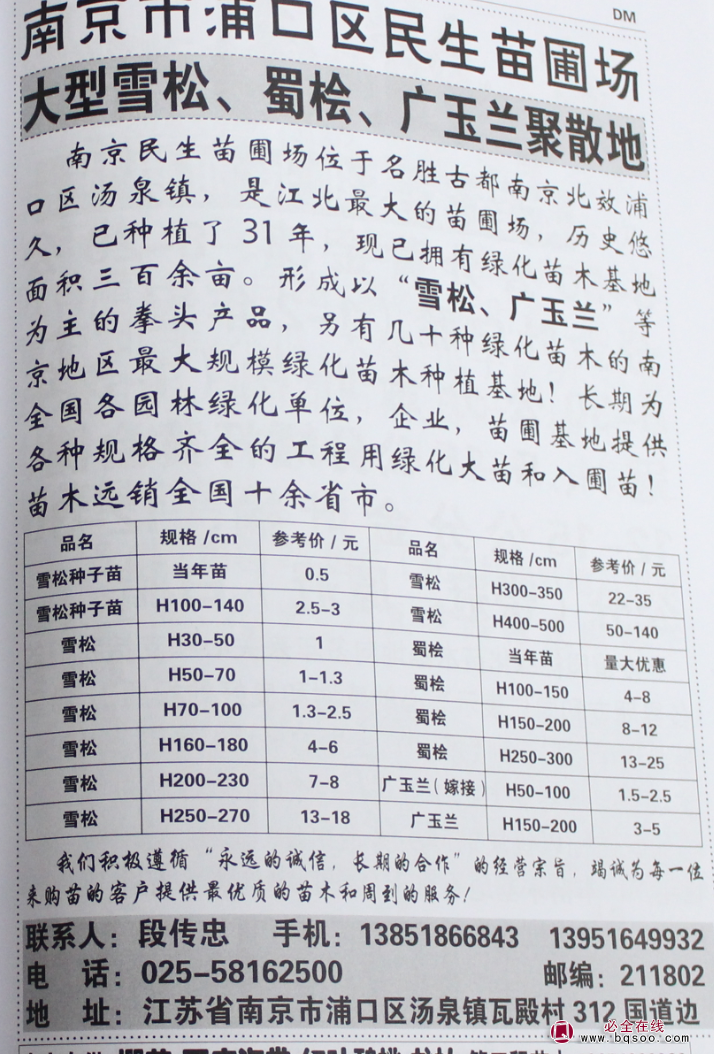 DM
南京市浦口区民生苗圃场
大型雪松、蜀桧、广玉兰聚散地
南京民生苗圃场位于名胜古都南京北效浦
口区汤泉镇，是江北最大的苗圃场，历史悠
久，已种植了31年，现已拥有绿化苗木基地
面积三百余亩。形成以“雪松、广玉兰”等
为主的拳头产品，另有几十种绿化苗木的南
京地区最大规模绿化苗木种植基地！长期为
全国各园林绿化单位，企业，苗圃基地提供
各种规格齐全的工程用绿化大苗和入圃苗！
苗木远销全国十余省市。
品名 规格/cm 参考价/元 品名 规格/cm 参考价/元
雪松种子苗 当年苗 0.5 雪松 H300-350 22-35
雪松种子苗 H100-140 2.5-3 雪松 H400-500 50-140
雪松 H30-50 1 蜀桧 当年苗 量大优惠
雪松 H50-70 1-1.3 蜀桧 H100-150 4-8
雪松 H70-100 1.3-2.5 蜀桧 H150-200 8-12
雪松 H160-180 4-6 蜀桧 H250-300 13-25
雪松 H200-230 7-8 广玉兰（嫁接） H50-100 1.5-2.5
雪松 H250-270 13-18 广玉兰 H150-200 3-5
我们积极遵循“永远的诚信，长期的合作”的经营宗旨，竭诚为每一位
来购苗的客户提供最优质的苗木和周到的服务！
联系人：段传忠 手机：13851866843 13951649932
电 话：025-58162500 邮编：211802
地 址：江苏省南京市浦口区汤泉镇瓦殿村312国道边
必全在线
www.bqsoo.com